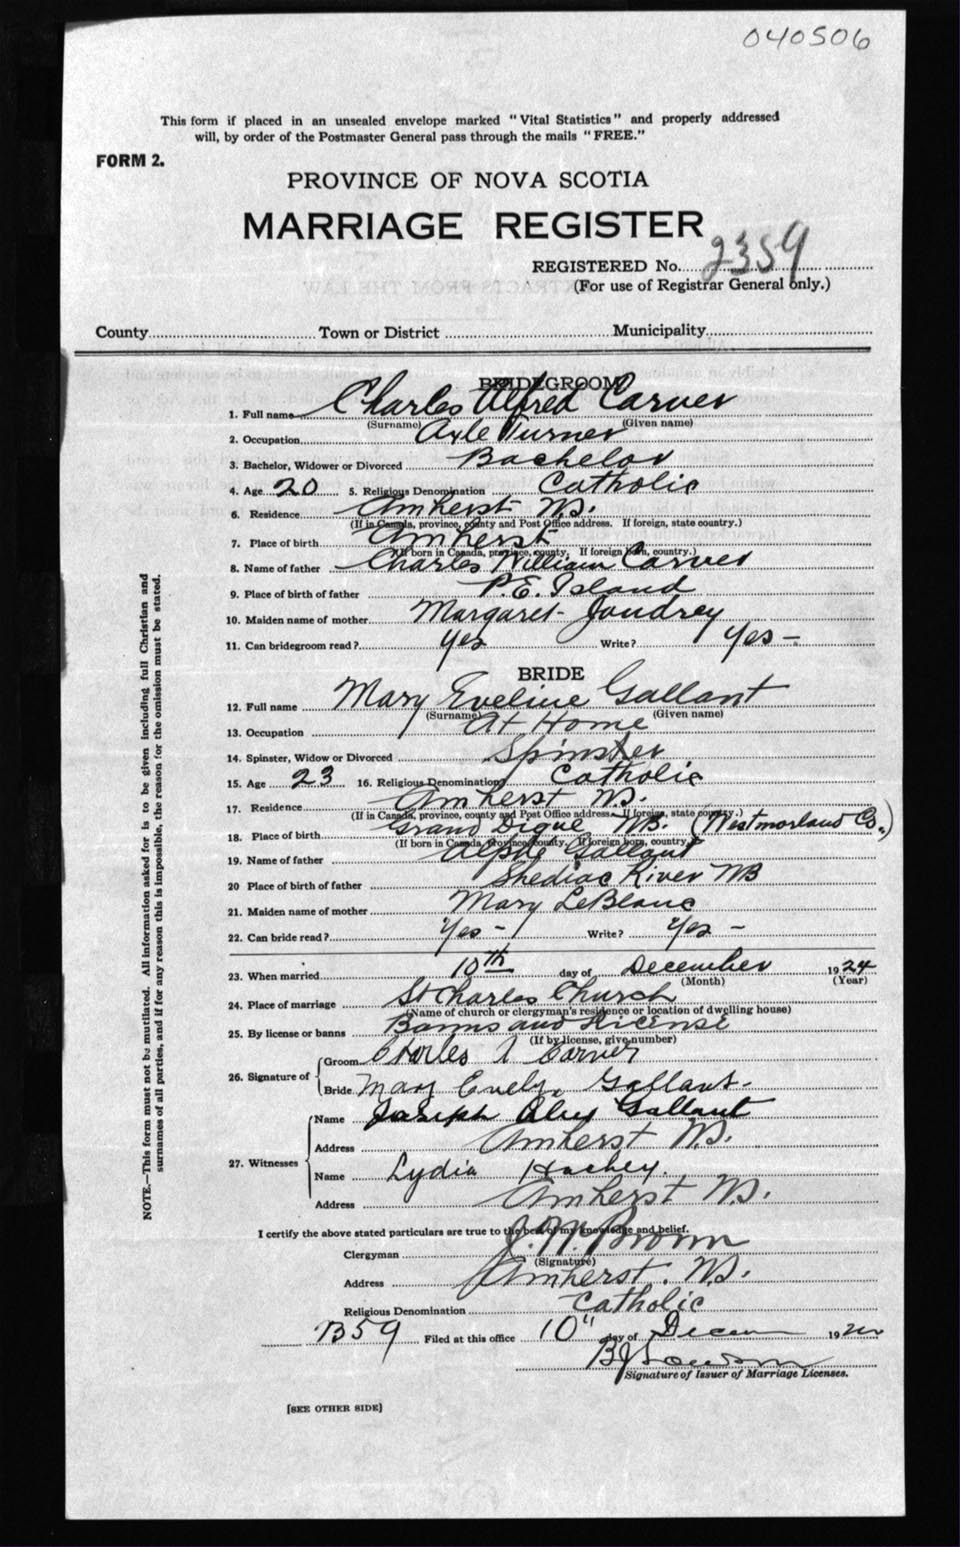 040506
This form if placed in an unsealed envelope marked "Vital Statistics" and properly addressed
will, by order of the Postmaster General pass through the mails "FREE."
FORM 2.
PROVINCE OF NOVA SCOTIA
MARRIAGE REGISTER
REGISTERED No. 2359
(For use of Registrar General only.)
County Town or District Municipality
BRIDEGROOM
1. Full name Charles Alfred Carver
(Surname) (Given name)
2. Occupation Axle Turner
3. Bachelor, Widower or Divorced Bachelor
4. Age 20 5. Religious Denomination Catholic
6. Residence Amherst N.S.
(If in Canada, province, county and Post Office address. If foreign, state country.)
7. Place of birth Amherst
(If born in Canada, province, county. If foreign born, country.)
8. Name of father Charles William Carver
9. Place of birth of father P.E. Island
10. Maiden name of mother Margaret Joudrey
11. Can bridegroom read? Yes Write? Yes -
BRIDE
12. Full name Mary Eveline Gallant
(Surname) (Given name)
13. Occupation At Home
14. Spinster, Widow or Divorced Spinster
15. Age 23 16. Religious Denomination Catholic
17. Residence Amherst N.S.
(If in Canada, province, county and Post Office address. If foreign, state country.)
18. Place of birth Grand Digue N.B. (Westmorland Co.)
(If born in Canada, province, county. If foreign born, country.)
19. Name of father Alphe Gallant
20 Place of birth of father Shediac River NB
21. Maiden name of mother Mary LeBlanc
22. Can bride read? Yes - Write? Yes -
23. When married 10th day of December 1924
(Month) (Year)
24. Place of marriage St Charles Church
(Name of church or clergyman's residence or location of dwelling house)
25. By license or banns Banns and License
(If by license, give number)
26. Signature of
Groom Charles A Carver
Bride Mary Evely Gallant.
27. Witnesses
Name Joseph Gallant
Address Amherst N.S.
Name Lydia Hachey.
Address Amherst N.S.
I certify the above stated particulars are true to the best of my knowledge and belief.
Clergyman J. N. Brown
(Signature)
Address Amherst. N.S.
Religious Denomination Catholic
B59 Filed at this office 10" day of Decem 192
Signature of Issuer of Marriage Licenses.
[SEE OTHER SIDE]
NOTE.—This form must not be mutilated. All information asked for is to be given including full Christian and
surnames of all parties, and if for any reason this is impossible, the reason for the omission must be stated.